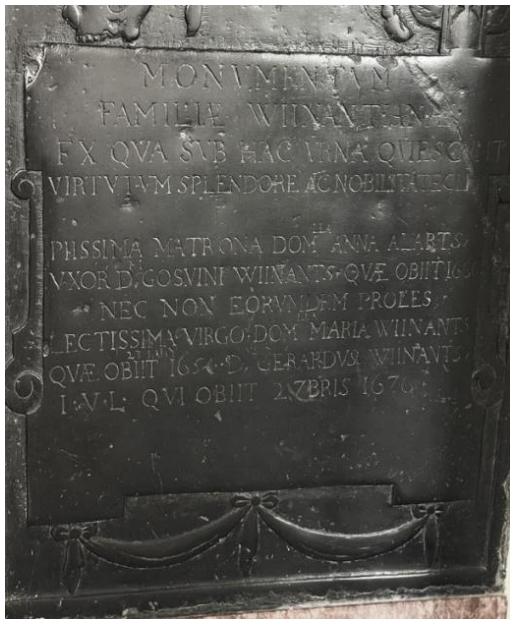 MONVMENTVM
FAMILIÆ WIINANTIIN
EX QVA SVB HAC VRNA QVIESCVNT
VIRTVTVM SPLENDORE AC NOBILITATE CL
PIISSIMA MATRONA DOM^LLA ANNA ALARTS
VXOR D. GOSVINI WIINANTS. QVÆ OBIIT
NEC NON EORVNDEM PROLES
LECTISSIMA VIRGO DOM^LLA MARIA WIINANTS
QVÆ OBIIT 1654. D. GERARDVS WIINANTS
I. V. L. QVI OBIIT 2 7BRIS 1676